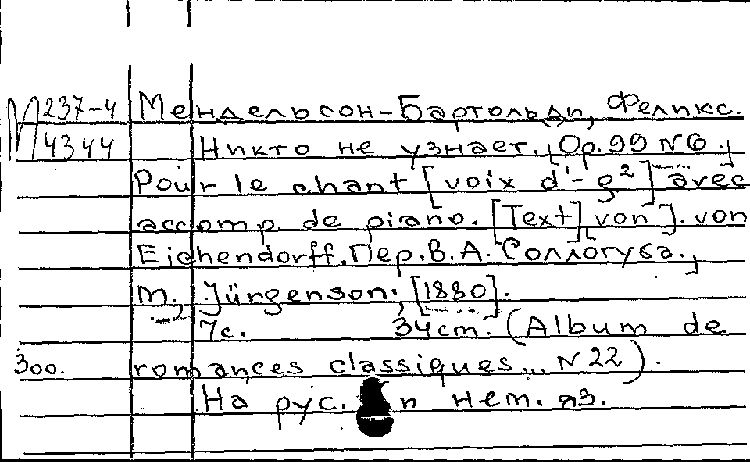 М 237-4 Мендельсон-Бартольди, Феликс.
4344 Никто не узнает. [Ор. 99 N 6.]
Pour le chant [voix d'-g²] avec
accomp. de piano. [Text] von J. von
Eichendorff. Пер. В. А. Соллогуба.
М., Jürgenson. [1880].
7с. 34cm. (Album de
300. romances classiques... N 22).
На рус. и нем. яз.